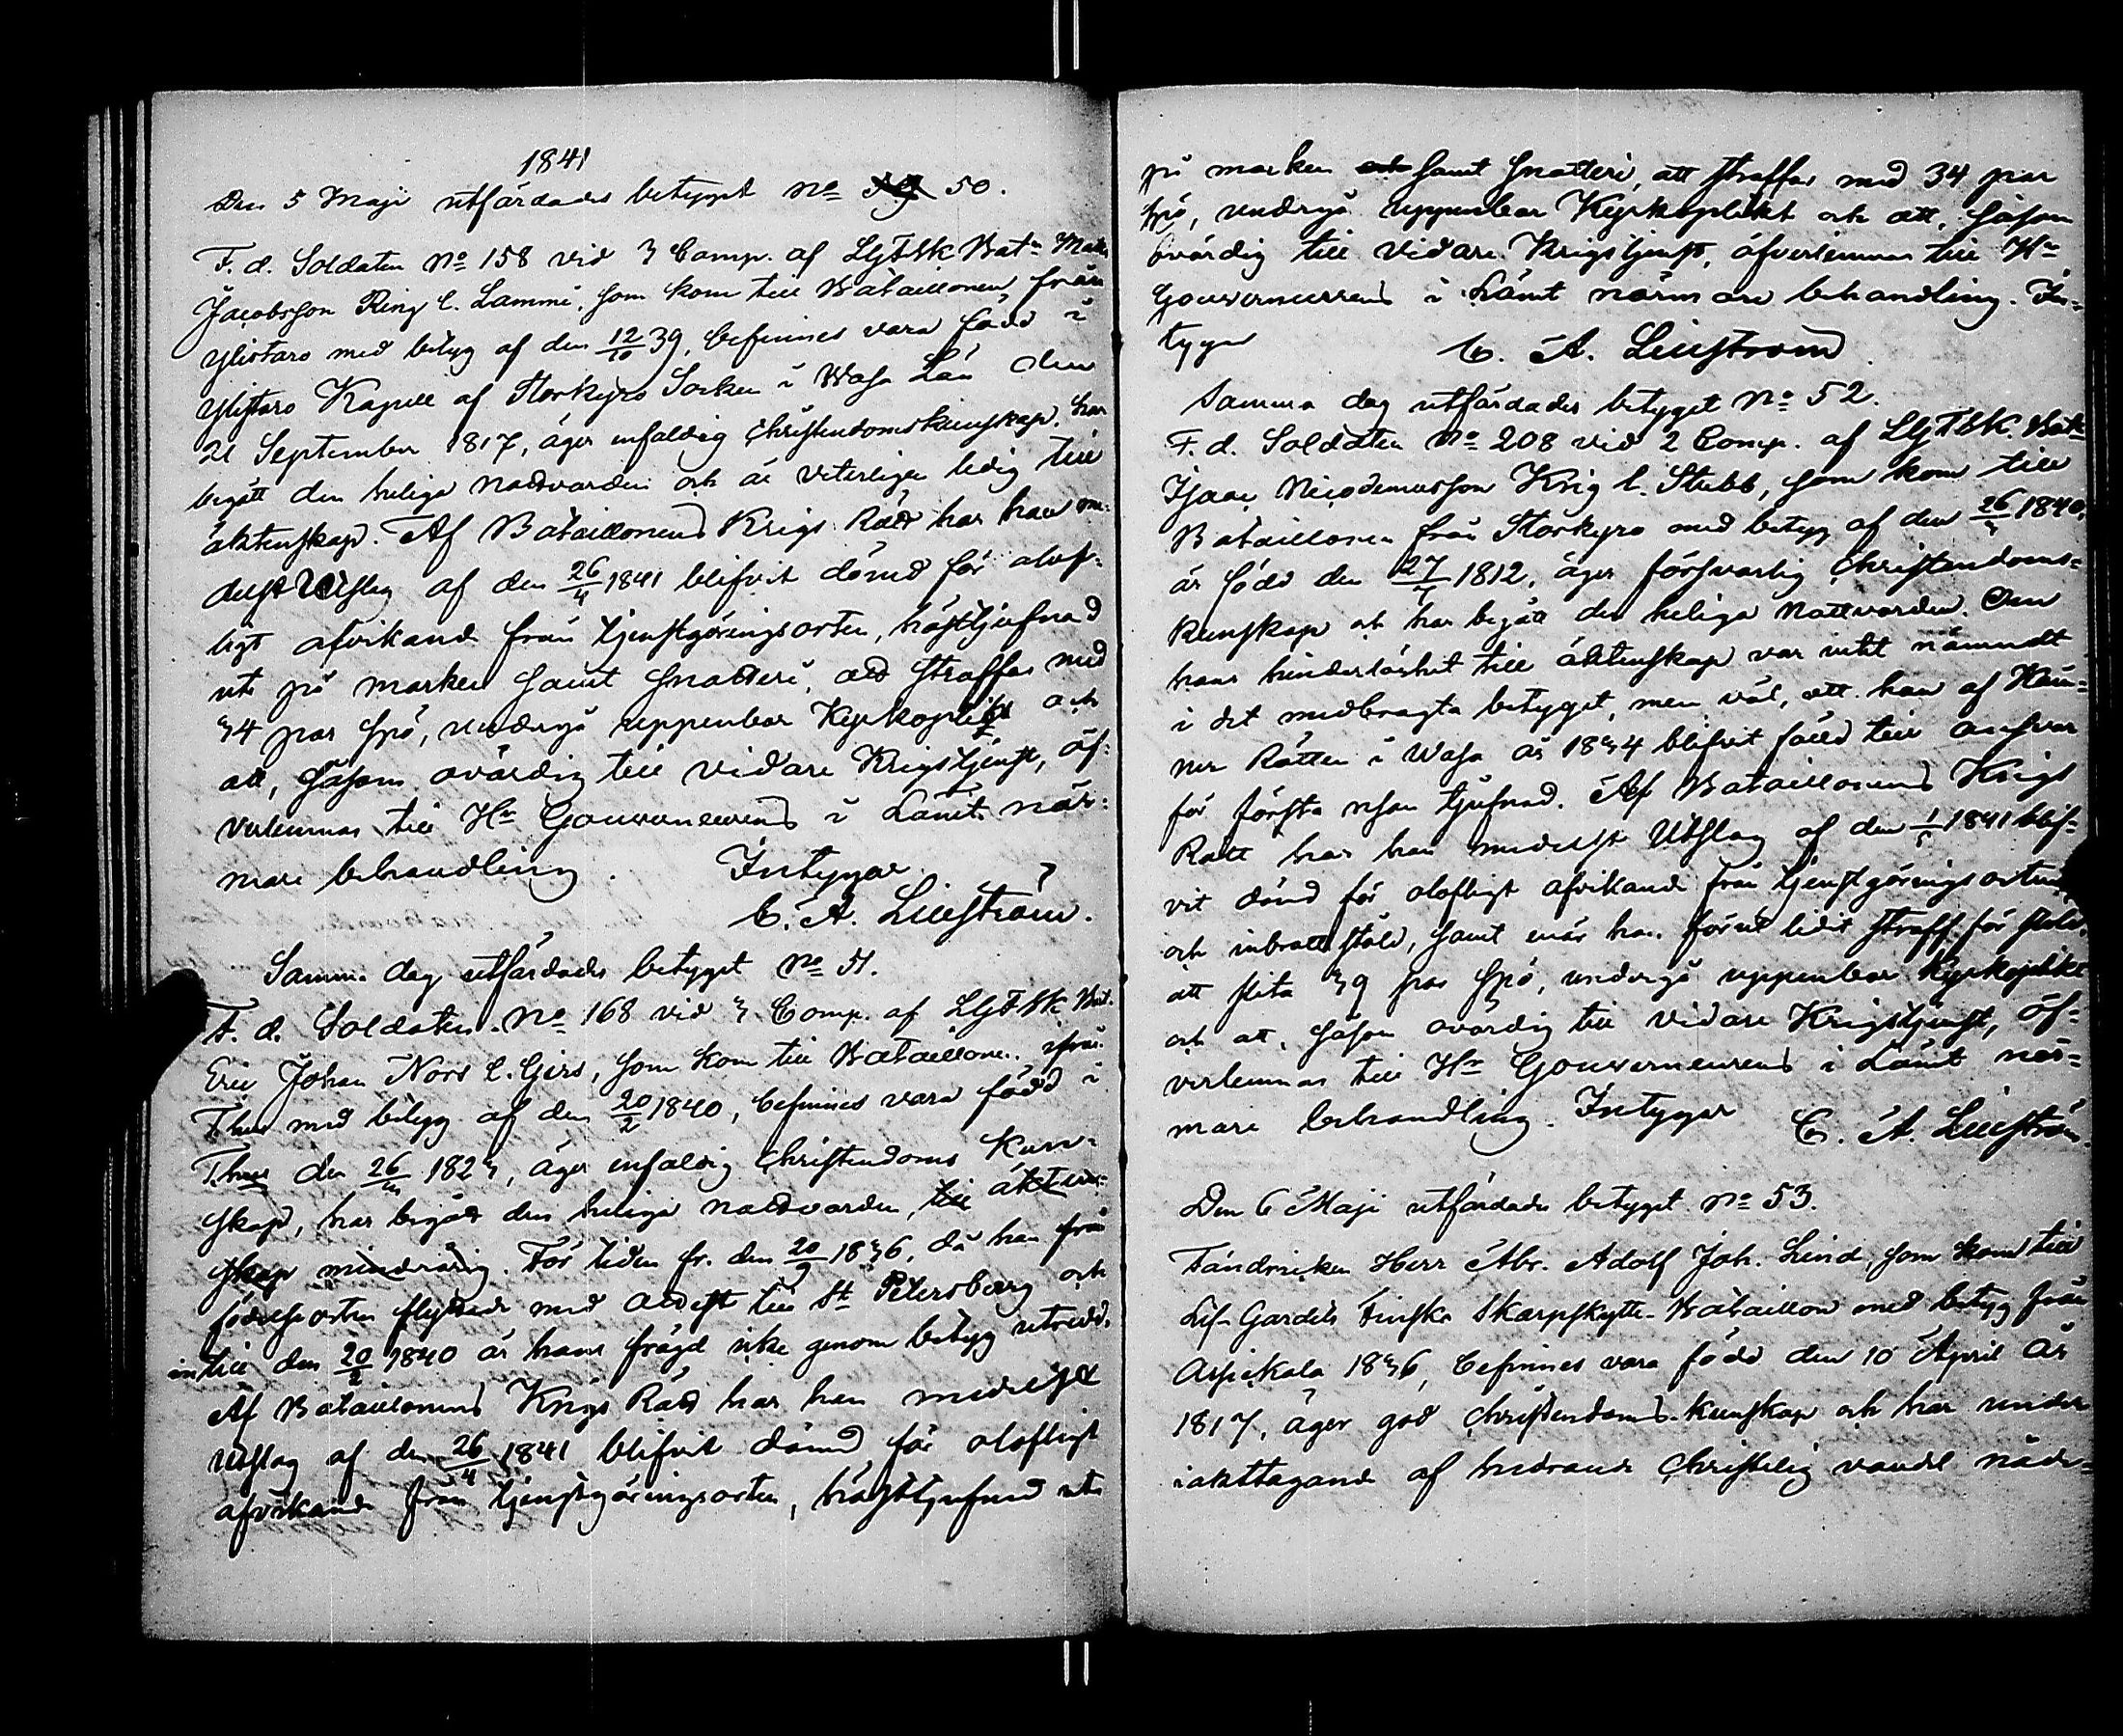 1841
Den 5 Maji utfärdades betyget No 50.
F. d. Soldaten No 158 vid 3 Comp. af LGFSk Batn Matts
Jacobsson Ring l. Lammi, som kom till Bataillonen från
Ylistaro med betyg af den 12/10 39, befinnes vara född i
Ylistaro Kapell af Storkyro Socken i Wasa Län den
21 September 1817, äger enfaldig Christendomskunskap, har
begått den heliga nattvarden och är veterligen ledig till
äktenskap. Af Bataillonens Krigs Rätt har han me-
delst Utslag af den 26/4 1841 blifvit dömd för olof-
ligt afvikande från tjenstgöringsorten, hästtjufnad
ute på marken samt snatteri, att straffas med
34 par spö, undergå uppenbar Kyrkoplikt och
att, såsom ovärdig till vidare Krigstjenst, öf-
verlemnas till Hr Gouverneurens i Länet när-
mare behandling. Intygar
C. A. Liliström.
Samma dag utfärdades betyget No 51.
F. d. Soldaten No 168 vid 3 Comp. af LGFSk Bat.
Eric Johan Nord l. Girs, som kom till Bataillonen ifrån
Thus med betyg af den 20/2 1840, befinnes vara född i
Thus den 26/ 1823, äger enfaldig Christendoms Kun-
skap, har begått den heliga nattvarden, till äkten-
skap minderårig. För tiden fr. den 20/9 1836, då han från
födelseorten flyttade med attest till St Petersburg och
intill den 20/2 1840 är hans frägd icke genom betyg utredd.
Af Bataillonens Krigs Rätt har han medelst
Utslag af den 26/4 1841 blifvit dömd för olofligt
afvikande från tjenstgöringsorten, hästtjufnad ute
på marken samt snatteri, att straffas med 34 par
spö, undergå uppenbar Kyrkoplikt och att, såsom
ovärdig till vidare Krigstjenst, öfverlemnas till Hr
Gouverneurens i Länet närmare behandling. In-
tygar
C. A. Liliström
Samma dag utfärdades betyget No 52.
F. d. Soldaten No 208 vid 2 Comp. af LGFSk. Batn
Isaac Nicodemusson Krig l. Stubb, som kom till
Bataillonen från Storkyro med betyg af den 26/3 1840,
är född den 27/7 1812, äger försvarlig Christendoms-
kunskap och har begått den heliga Nattvarden. Om
hans hinderlöshet till äktenskap var intet nämndt
i det medbragta betyget, men väl, att han af Häm-
ner Rätten i Wasa år 1834 blifvit fälld till ansvar
för första resan tjufnad. Af Bataillonens Krigs
Rätt har han medelst Utslag af den 1/5 1841 blif-
vit dömd för olofligt afvikande från tjenstgöringsorten
och inbrottsstöld, samt enär han förut lidit straff för stöld,
att slita 39 par spö, undergå uppenbar Kyrkoplikt
och att, såsom ovärdig till vidare Krigstjenst, öf-
verlemnas till Hr Gouverneurens i Länet när-
mare behandling. Intygar
C. A. Liliström.
Den 6 Maji utfärdades betyget No 53.
Fändricken Herr Abr. Adolf Joh. Lind, som kom till
Lif-Gardets Finska Skarpskytte-Bataillon med betyg från
Asickala 1836, befinnes vara född den 10 April år
1817, äger god Christendoms-kunskap och har under
iakttagande af hedrande Christelig vandel nådv-